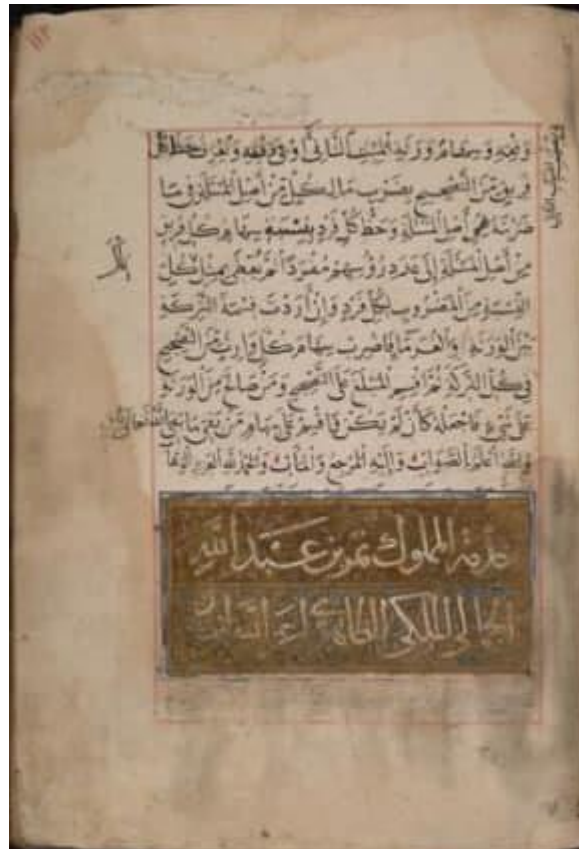 ١١٢
وسهام ورثة الميت الثاني أو في وفقه وتعرف حظ كل
فريق من التصحيح بضرب ما لكل من أصل المسئلة في ما
ضربته في أصل المسئلة وحظ كل فرد بنسبة سهام كل فريق
من أصل المسئلة إلى عدد رؤسهم مفردا ثم يعطى بمثل تلك
النسبة من المضروب لكل فرد وإن أردت قسمة التركة
بين الورثة والغرماء فاضرب سهام كل وارث من التصحيح
في كل التركة ثم اقسم المبلغ على التصحيح ومن صالح من الورثة
على شيء فاجعله كأن لم يكن فاقسم على سهام من بقي ما بقي
والله أعلم بالصواب وإليه المرجع والمآب والحمد لله العزيز الوهاب
خدمة المملوك تمر بن عبد الله
الملكي